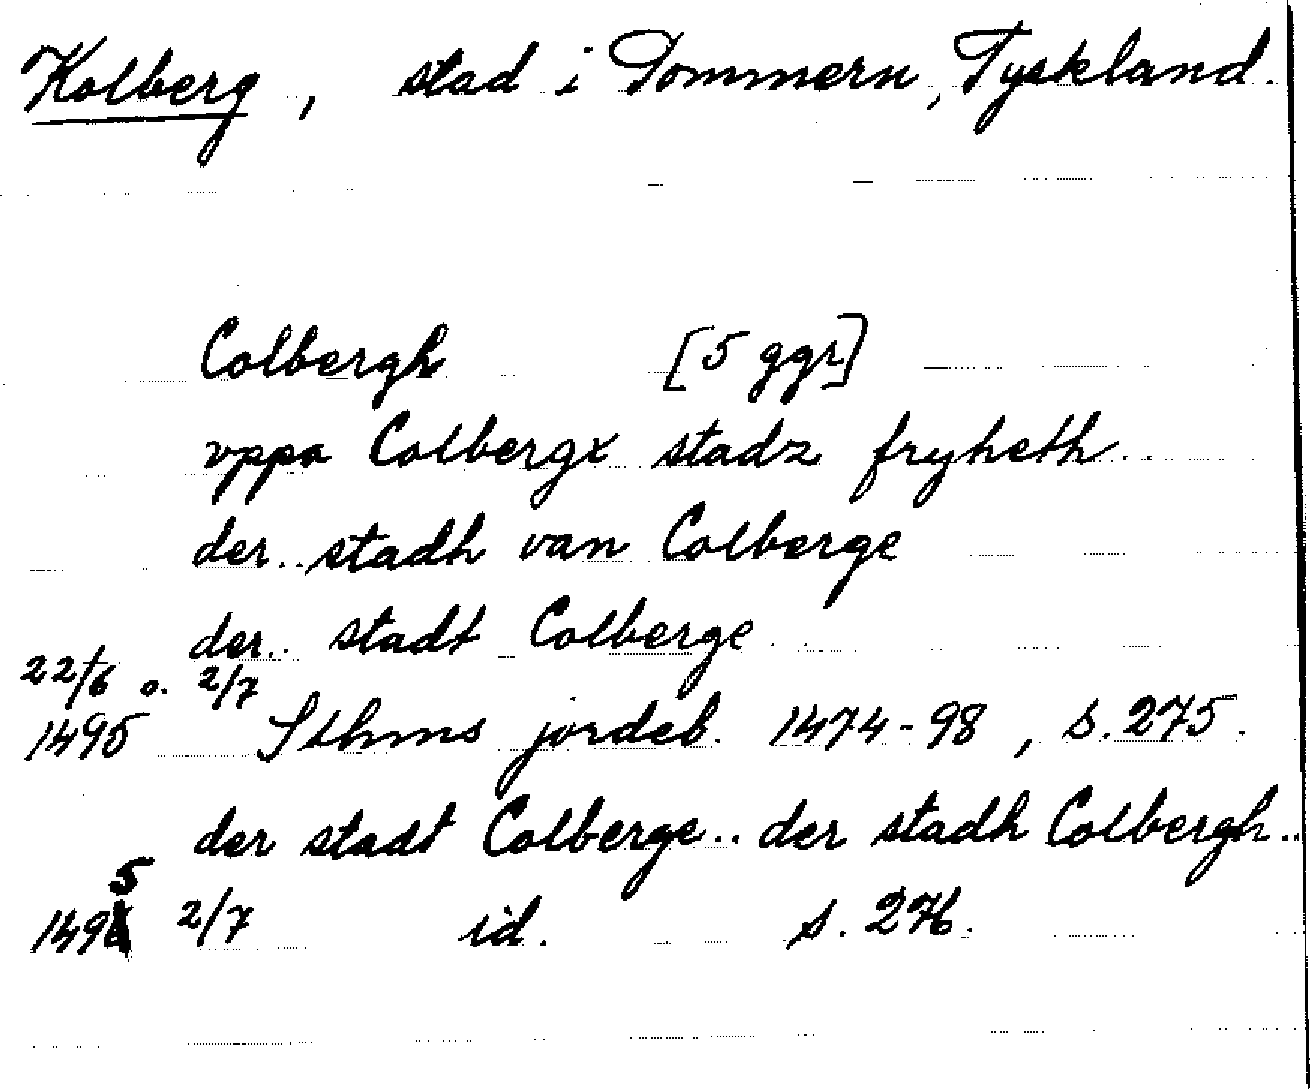 Kolberg, stad i Pommern, Tyskland.
Colbergh [5 ggr]
vppa Colbergx stadz fryheth
der stadh van Colberge
der stadt Colberge
22/6 o. 2/7
1495 Sthms jordeb. 1474-98, s. 275.
der stadt Colberge.. der stadh Colbergh..
1495 2/7 id. s. 276.